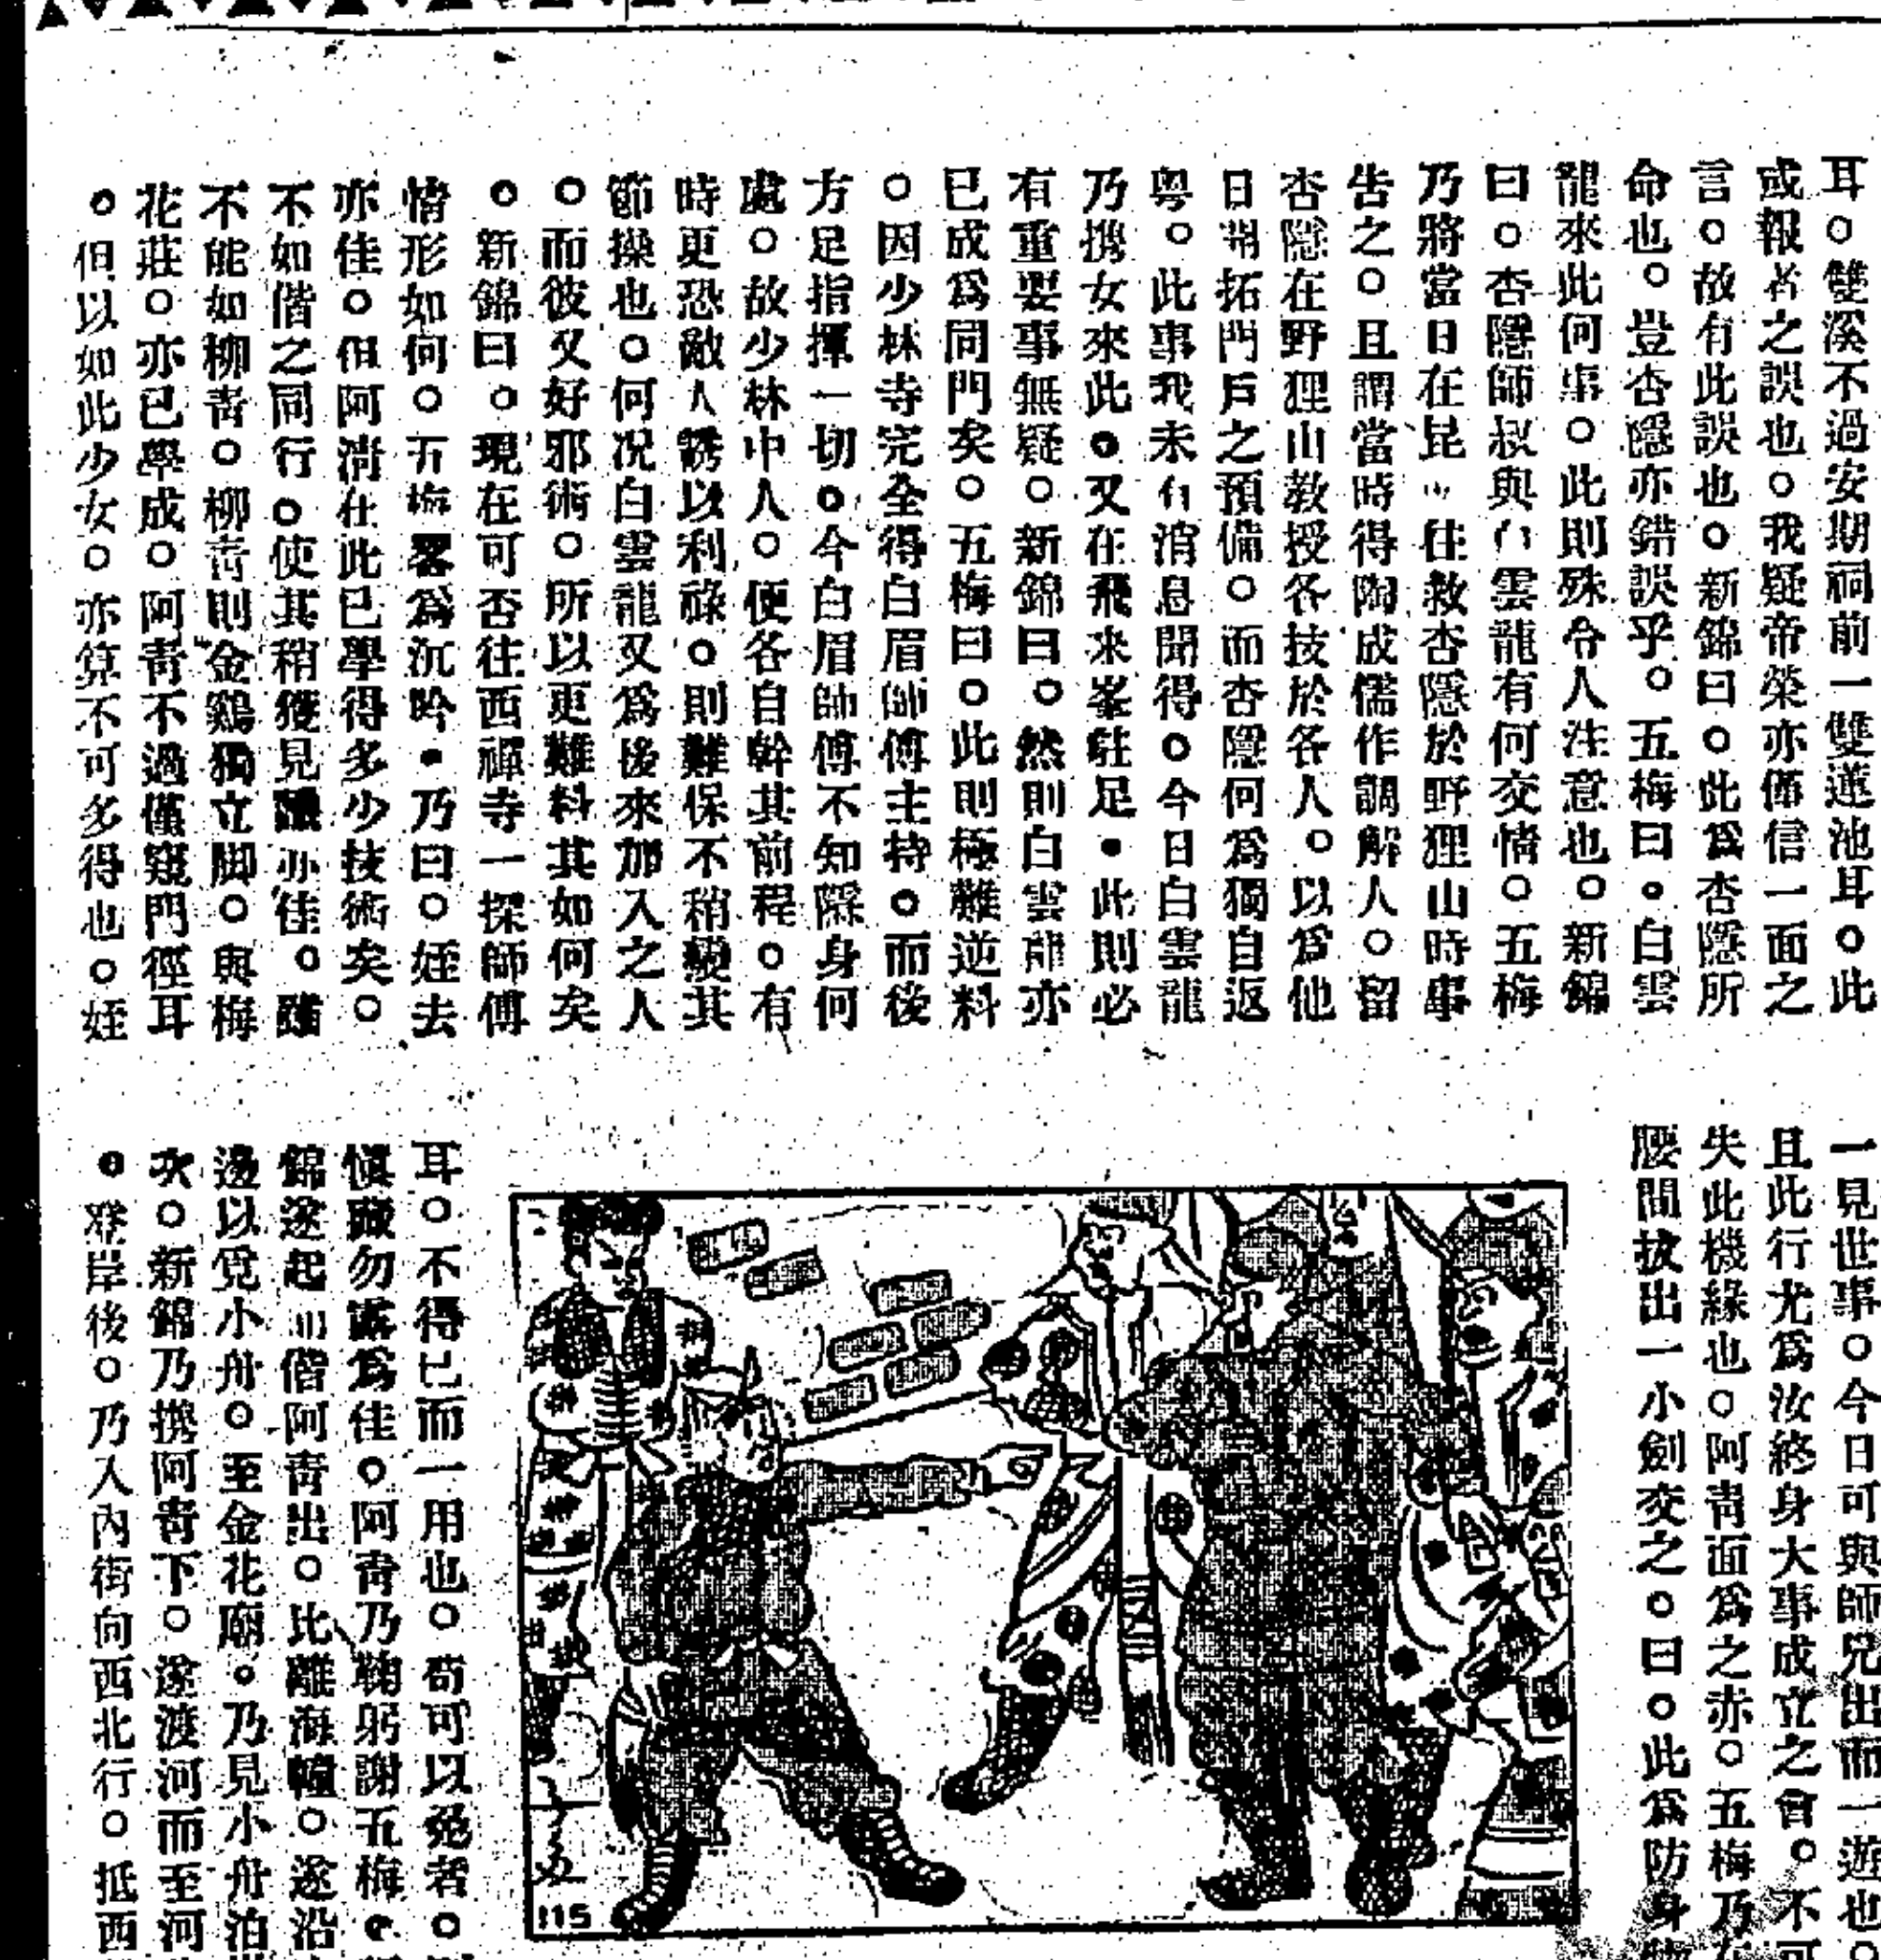 耳。雙溪不過安期祠前一雙蓮池耳。此
或報者之誤也。我疑帝榮亦僅信一面之
言。故有此誤也。新錦曰。此爲杏隱所
命也。豈杏隱亦錯誤乎。五梅曰。白雲
龍來此何事。此則殊令人注意也。新錦
曰。杏隱師叔與白雲龍有何交情。五梅
乃將當日在昆山往救杏隱於野狸山時事
告之。且謂當時得陶成儒作調解人。留
杏隱在野狸山教授各技於各人。以爲他
日開拓門戶之預備。而杏隱何爲獨自返
粵。此事我未有消息聞得。今日白雲龍
乃携女來此。又在飛來峯駐足。此則必
有重要事無疑。新錦曰。然則白雲龍亦
已成爲同門矣。五梅曰。此則極難逆料
。因少林寺完全得白眉師傅主持。而後
方足指揮一切。今白眉師傅不知隱身何
處。故少林中人。便各自幹其前程。有
時更恐敵人誘以利祿。則難保不稍變其
節操也。何况白雲龍又爲後來加入之人
。而彼又好邪術。所以更難料其如何矣
。新錦曰。現在可否往西禪寺一探師傅
情形如何。五梅畧爲沉吟。乃曰。姪去
亦佳。但阿青在此已學得多少技術矣。
不如偕之同行。使其稍獲見識亦佳。雖
不能如柳青。柳青則金鷄獨立脚。與梅
花莊。亦已學成。阿靑不過僅窺門徑耳
。但以如此少女。亦算不可多得也。姪
一見世事。今日可與師兄出而一遊也。
且此行尤爲汝終身大事成立之會。不可
失此機緣也。阿靑面爲之赤。五梅乃在
腰間拔出一小劍交之。曰。此爲防身
耳。不得已而一用也。苟可以免者。
愼藏勿露爲佳。阿靑乃鞠躬謝五梅。
錦遂起出偕阿靑出。比離海幢。遂沿
邊以覓小舟。至金花廟。乃見小舟泊
次。新錦乃携阿靑下。遂渡河而至河
。登岸後。乃入內街向西北行。抵西
115